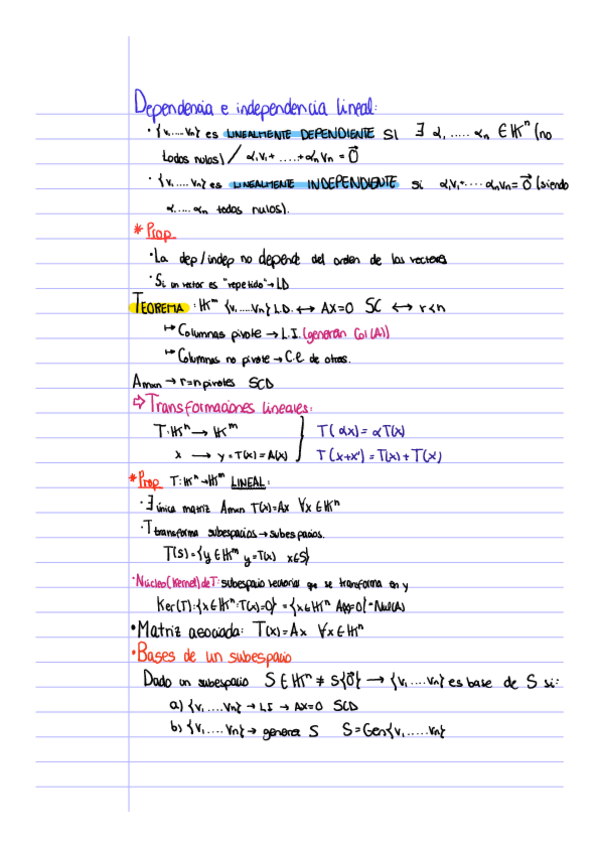 Dependencia e independencia lineal:
· {v₁.....vₙ} es LINEALMENTE DEPENDIENTE SI ∃ α₁ ..... αₙ ∈ 𝕂ⁿ (no
todos nulos) / α₁v₁+ .....+αₙvₙ = 0⃗
· {v₁.....vₙ} es LINEALMENTE INDEPENDIENTE si α₁v₁+.... αₙvₙ = 0⃗ (siendo
α₁..... αₙ todos nulos).
* Prop
· La dep/indep no depende del orden de los vectores
· Si un vector es "repetido" → LD
TEOREMA : 𝕂ᵐ {v₁.....vₙ} L.D. ↔ AX=0 SC ↔ r<n
↦ Columnas pivote → L.I. (generan Col(A))
↦ Columnas no pivote → C.L. de otras.
Aₘₓₙ → r=n pivotes SCD
⇨ Transformaciones lineales:
T: 𝕂ⁿ → 𝕂ᵐ } T(αx) = αT(x)
x → y = T(x) = A(x) T(x+x') = T(x) + T(x')
* Prop T: 𝕂ⁿ→𝕂ᵐ LINEAL:
· ∃ única matriz Aₘₓₙ T(x)=Ax ∀x∈𝕂ⁿ
· T transforma subespacios → subespacios.
T(S) = {y∈𝕂ᵐ y=T(x) x∈S}
· Núcleo (Kernel) de T: subespacio vectorial que se transforma en y
Ker(T): {x∈𝕂ⁿ: T(x)=0} = {x∈𝕂ⁿ A(x)=0} = Nul(A)
• Matriz asociada: T(x) = Ax ∀x∈𝕂ⁿ
• Bases de un subespacio
Dado un subespacio S∈𝕂ⁿ ≠ S{0⃗} → {v₁.....vₙ} es base de S si:
a) {v₁.....vₙ} → L.I → AX=0 SCD
b) {v₁.....vₙ} → genera S S=Gen{v₁......vₙ}